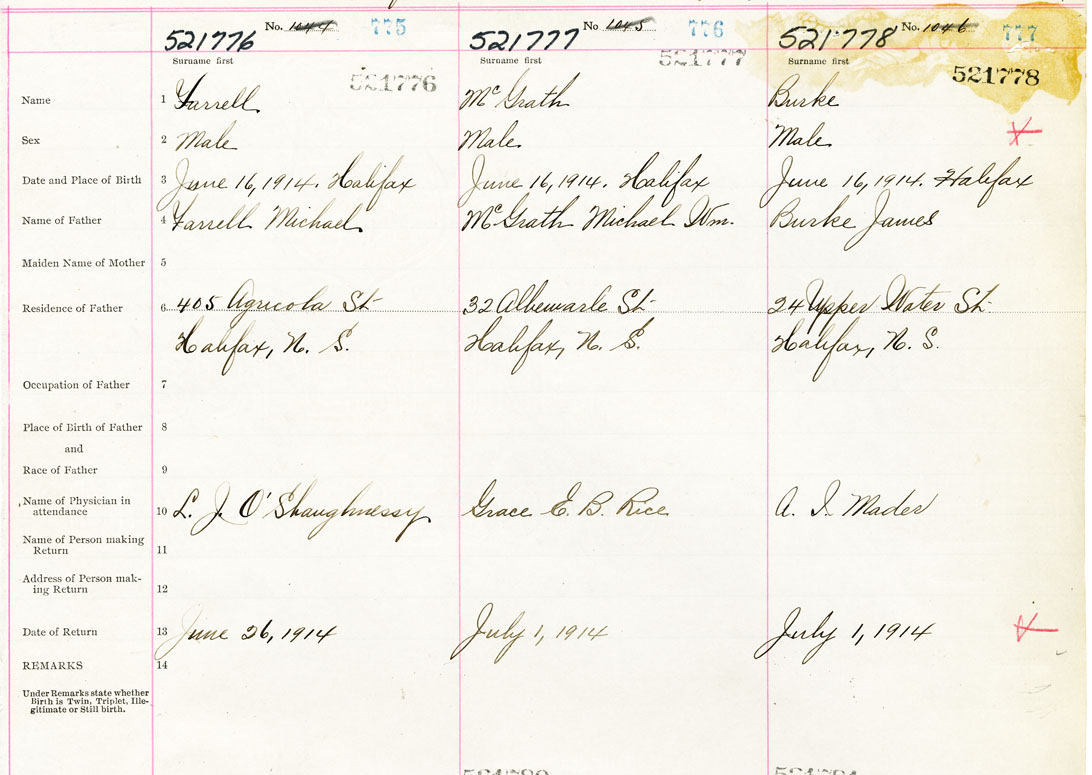 No. 1044 775 No 1045 776 No. 1046 777
521776 521777 521778
Surname first Surname first Surname first
521776 521777 521778
Name 1 Farrell McGrath Burke
Sex 2 Male Male Male
Date and Place of Birth 3 June 16, 1914. Halifax June 16, 1914. Halifax June 16, 1914. Halifax
Name of Father 4 Farrell Michael McGrath Michael Wm. Burke James
Maiden Name of Mother 5
Residence of Father 6 405 Agricola St 32 Albewarle St 24 Upper Water St.
Halifax, N. S. Halifax, N. S. Halifax, N. S.
Occupation of Father 7
Place of Birth of Father 8
and
Race of Father 9
Name of Physician in
attendance 10 L. J. O'Shaughnessy Grace E. B. Rice A. I. Mader
Name of Person making
Return 11
Address of Person mak-
ing Return 12
Date of Return 13 June 26, 1914 July 1, 1914 July 1, 1914
REMARKS 14
Under Remarks state whether
Birth is Twin, Triplet, Ille-
gitimate or Still birth.